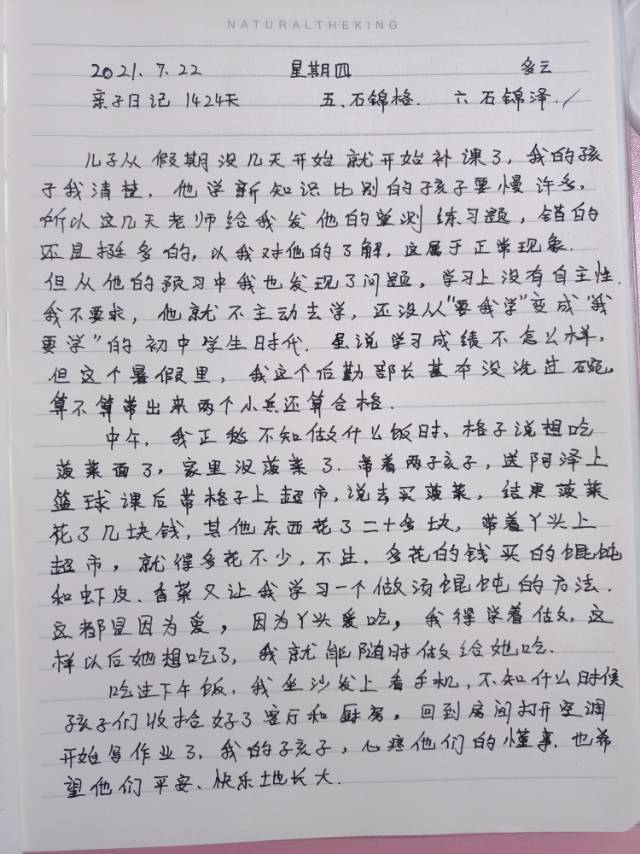 NATURALTHEKING
2021.7.22 星期四 多云
亲子日记 1424天 五.石锦格. 六石锦泽./
儿子从假期没几天开始就开始补课了,我的孩
子我清楚,他学新知识比别的孩子要慢许多,
所以这几天老师给我发他的堂测练习题,错的
还是挺多的,以我对他的了解,这属于正常现象.
但从他的预习中我也发现了问题,学习上没有自主性.
我不要求,他就不主动去学,还没从“要我学”变成“我
要学”的初中学生时代.虽说学习成绩不怎么样,
但这个暑假里,我这个后勤部长基本没洗过碗,
算不算带出来两个小兵还算合格.
中午,我正愁不知做什么饭时、格子说想吃
菠菜面了,家里没菠菜了.带着两子孩子,送阿泽上
篮球课后带格子上超市,说去买菠菜,结果菠菜
花了几块钱,其他东西花了二十多块,带着丫头上
超市,就得多花不少,不过,多花的钱买的馄饨
和虾皮、香菜又让我学习一个做汤馄饨的方法.
这都是因为爱,因为丫头爱吃,我得学着做,这
样以后她想吃了,我就能随时做给她吃.
吃过下午饭,我坐沙发上看手机,不知什么时候
孩子们收拾好了客厅和厨房,回到房间打开空调
开始写作业了,我的子孩子,心疼他们的懂事.也希
望他们平安、快乐地长大.